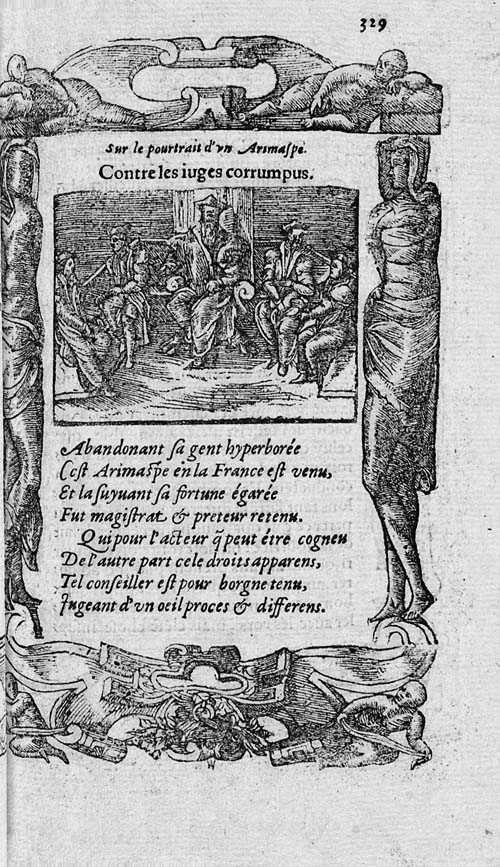 329
Sur le pourtrait d'vn Arimaspe.
Contre les iuges corrumpus.
Abandonant sa gent hyperborée
Cest Arimaspe en la France est venu,
Et la suyuant sa fortune égarée
Fut magistrat & preteur retenu.
Qui pour l'acteur q̃ peut étre cogneu
De l'autre part cele droits apparens,
Tel conseiller est pour borgne tenu,
Jugeant d'vn oeil proces & differens.